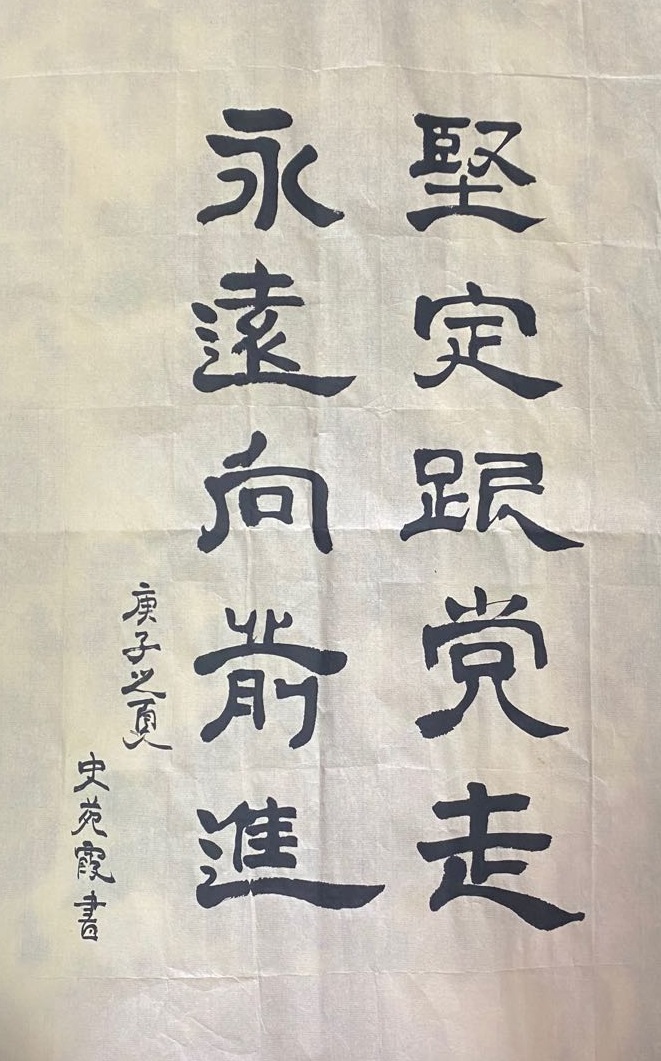 堅定跟党走
永遠向前進
庚子之夏
史苑霞書